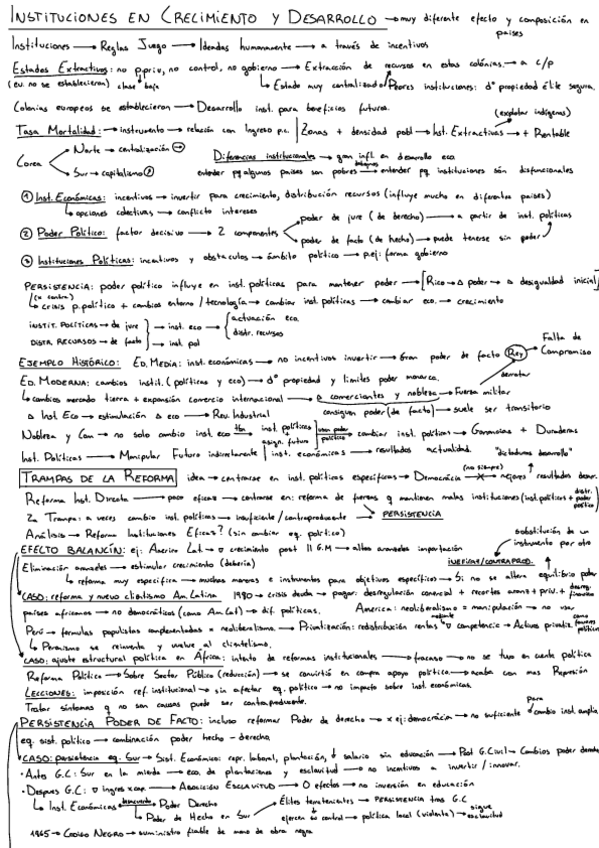 INSTITUCIONES EN CRECIMIENTO Y DESARROLLO → muy diferente efecto y composición en países
Instituciones → Reglas Juego → Ideadas humanamente → a través de incentivos
Estados Extractivos: no p.priv, no control, no gobierno → Extracción de recursos en estas colónias → a c/p
(eu. no se establecieron) clase baja ↳ Estado muy centralizado → Peores instituciones: dº propiedad élite segura.
Colonias europeos se establecieron → Desarrollo inst. para beneficios futuros.
(explotar indígenas)
Tasa Mortalidad: → instrumento → relación con Ingreso p.c. | Zonas + densidad pobl → Inst. Extractivas → + Rentable
Corea Norte → centralización
Sur → capitalismo
Diferencias institucionales → gran infl. en desarrollo eco.
entender pq algunos países son pobres → entender pq instituciones són disfuncionales
① Inst. Económicas: incentivos → invertir para crecimiento, distribución recursos (influye mucho en diferentes países)
↳ opciones colectivas → conflicto intereses
② Poder Político: factor decisivo → 2 componentes
poder de jure (de derecho) → a partir de inst. políticas
poder de facto (de hecho) → puede tenerse sin poder
③ Instituciones Políticas: incentivos y obstaculos → ámbito político → p.ej: forma gobierno
PERSISTENCIA: poder político influye en inst. políticas para mantener poder → [Rico → Δ poder → Δ desigualdad inicial]
(en contra)
↳ crisis p.político + cambios entorno / tecnología → cambiar inst. políticas → cambiar eco. → crecimiento
INSTIT. POLÍTICAS → de jure
DISTR. RECURSOS → de facto
→ inst. eco → actuación eco.
distr. recursos
→ inst. pol
EJEMPLO HISTÓRICO: ED. MEDIA: inst. económicas → no incentivos invertir → Gran poder de facto (Rey) Falta de Compromiso
ED. MODERNA: cambios instit. (políticas y eco) → dº propiedad y limites poder monarca. derrotar
↳ cambios mercado tierra + expansión comercio internacional → Δ comerciantes y nobleza → Fuerza militar
Δ Inst Eco → estimulación Δ eco → Rev. Industrial consiguen poder (de facto) → suele ser transitorio
Nobleza y Com → no solo cambio inst. eco tbn inst. políticas + asign. futuro usan poder político → cambiar inst. políticas → Ganancias + Duraderas
Inst. Políticas → Manipular Futuro indirectamente | inst. económicas → resultados actualidad. "dictaduras desarrollo"
TRAMPAS DE LA REFORMA idea → centrarse en inst. políticas específicas → Democrácia (no siempre) → mejores resultados desarr.
Reforma Inst. Directa → poco eficaz → centrarse en: reforma de fuerzas q mantienen malas instituciones (inst. políticas + distr. poder político)
2a Trampa: a veces cambio inst. políticas → insuficiente / contraproducente PERSISTENCIA
Análisis → Reforma Instituciones Eficaz? (sin cambiar eq. político)
sustitución de un instrumento por otro
EFECTO BALANCÍN: ej: América Lat. → ▽ crecimiento post II G.M → altos aranceles importación
Eliminación aranceles → estimular crecimiento (debería) INEFICAZ/CONTRAPROD.
↳ reforma muy específica → muchas maneras e instrumentos para objetivos específico → Si no se altera equilibrio poder
CASO: reforma y nuevo clietismo Am. Latina 1980 → crisis deuda → pagar: desregulación comercial + recortes aranz + priv. + desreg. financiera
países africanos → no democráticos (como Am. Lat) → dif. políticas. America: neoliberalismo = manipulación → no usar como favores políticos
Perú → formulas populistas complementadas = neoliberalismo → Privatización: redistribución rentas mediante ▽ competencia → Activos privatiz.
↳ Peronismo se reinventa y vuelve al clientelismo.
CASO: ajuste estructural política en África: intento de reformas institucionales → fracaso → no se tuvo en cuenta política
Reforma Política → Sobre Sector Público (reducción) → se convirtió en compra apoyo política → acaba con mas Represión
LECCIONES: imposición ref. institucional → sin afectar eq. político → no impacto sobre inst. económicas.
Tratar síntomas q no son causas puede ser contraproducente.
PERSISTENCIA PODER DE FACTO: incluso reformar Poder de derecho → x ej: democrácia → no suficiente para cambio inst. amplia
eq. sist. político → combinación poder hecho - derecho.
CASO: persistencia eq. Sur → Sist. Económico: repr. laboral, plantación, ↓ salario sin educación → Post G.Civil → Cambios poder derecho
• Antes G.C: Sur en la mierda → eco. de plantaciones y esclavitud → no incentivos a invertir / innovar.
• Despues G.C: ▽ ingres x cap. → ABOLICIÓN ESCLAVITUD → 0 efectos → no inversión en educación
↳ Inst. Económicas → Poder Derecho
↳ Poder de Hecho en Sur → Élites terratenientes → PERSISTENCIA TRAS G.C
ejercen su control → política local (violenta) → sigue esclavitud
1865 → CODIGO NEGRO → suministro fiable de mano de obra negra